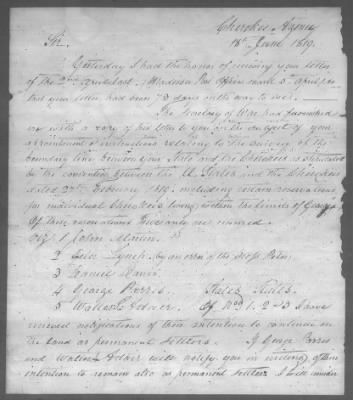 Cherokee Agency
18th June 1819.
Sir,
Yesterday I had the honor of receiving your letter
of the 2nd April last, Post Office mark 5th April, so
that your letter had been 73 days on the way to me.
The Secretary of War has furnished
me with a copy of his letter to you on the subject of your
appointment & instructions relating to the survey of the
boundary line between your State and the Cherokees as stipulated
by the convention between the U States and the Cherokees
dated 27th February 1819. including certain reservations
for individual Cherokees living within the limits of Georgia
Of these reservations are named.
1 John Martin.
2 Lynch. by an error of the press Peter
3 Daniel Davis.
4 George Parris
5 Walter S Adair. Of No 1. 2 & 3 I have
received notifications of their intention to continue on
the land as permanent settlers. If George Parris
and Walter Adair will notify you in writing of their
intention to remain also as permanent settlers I will consider